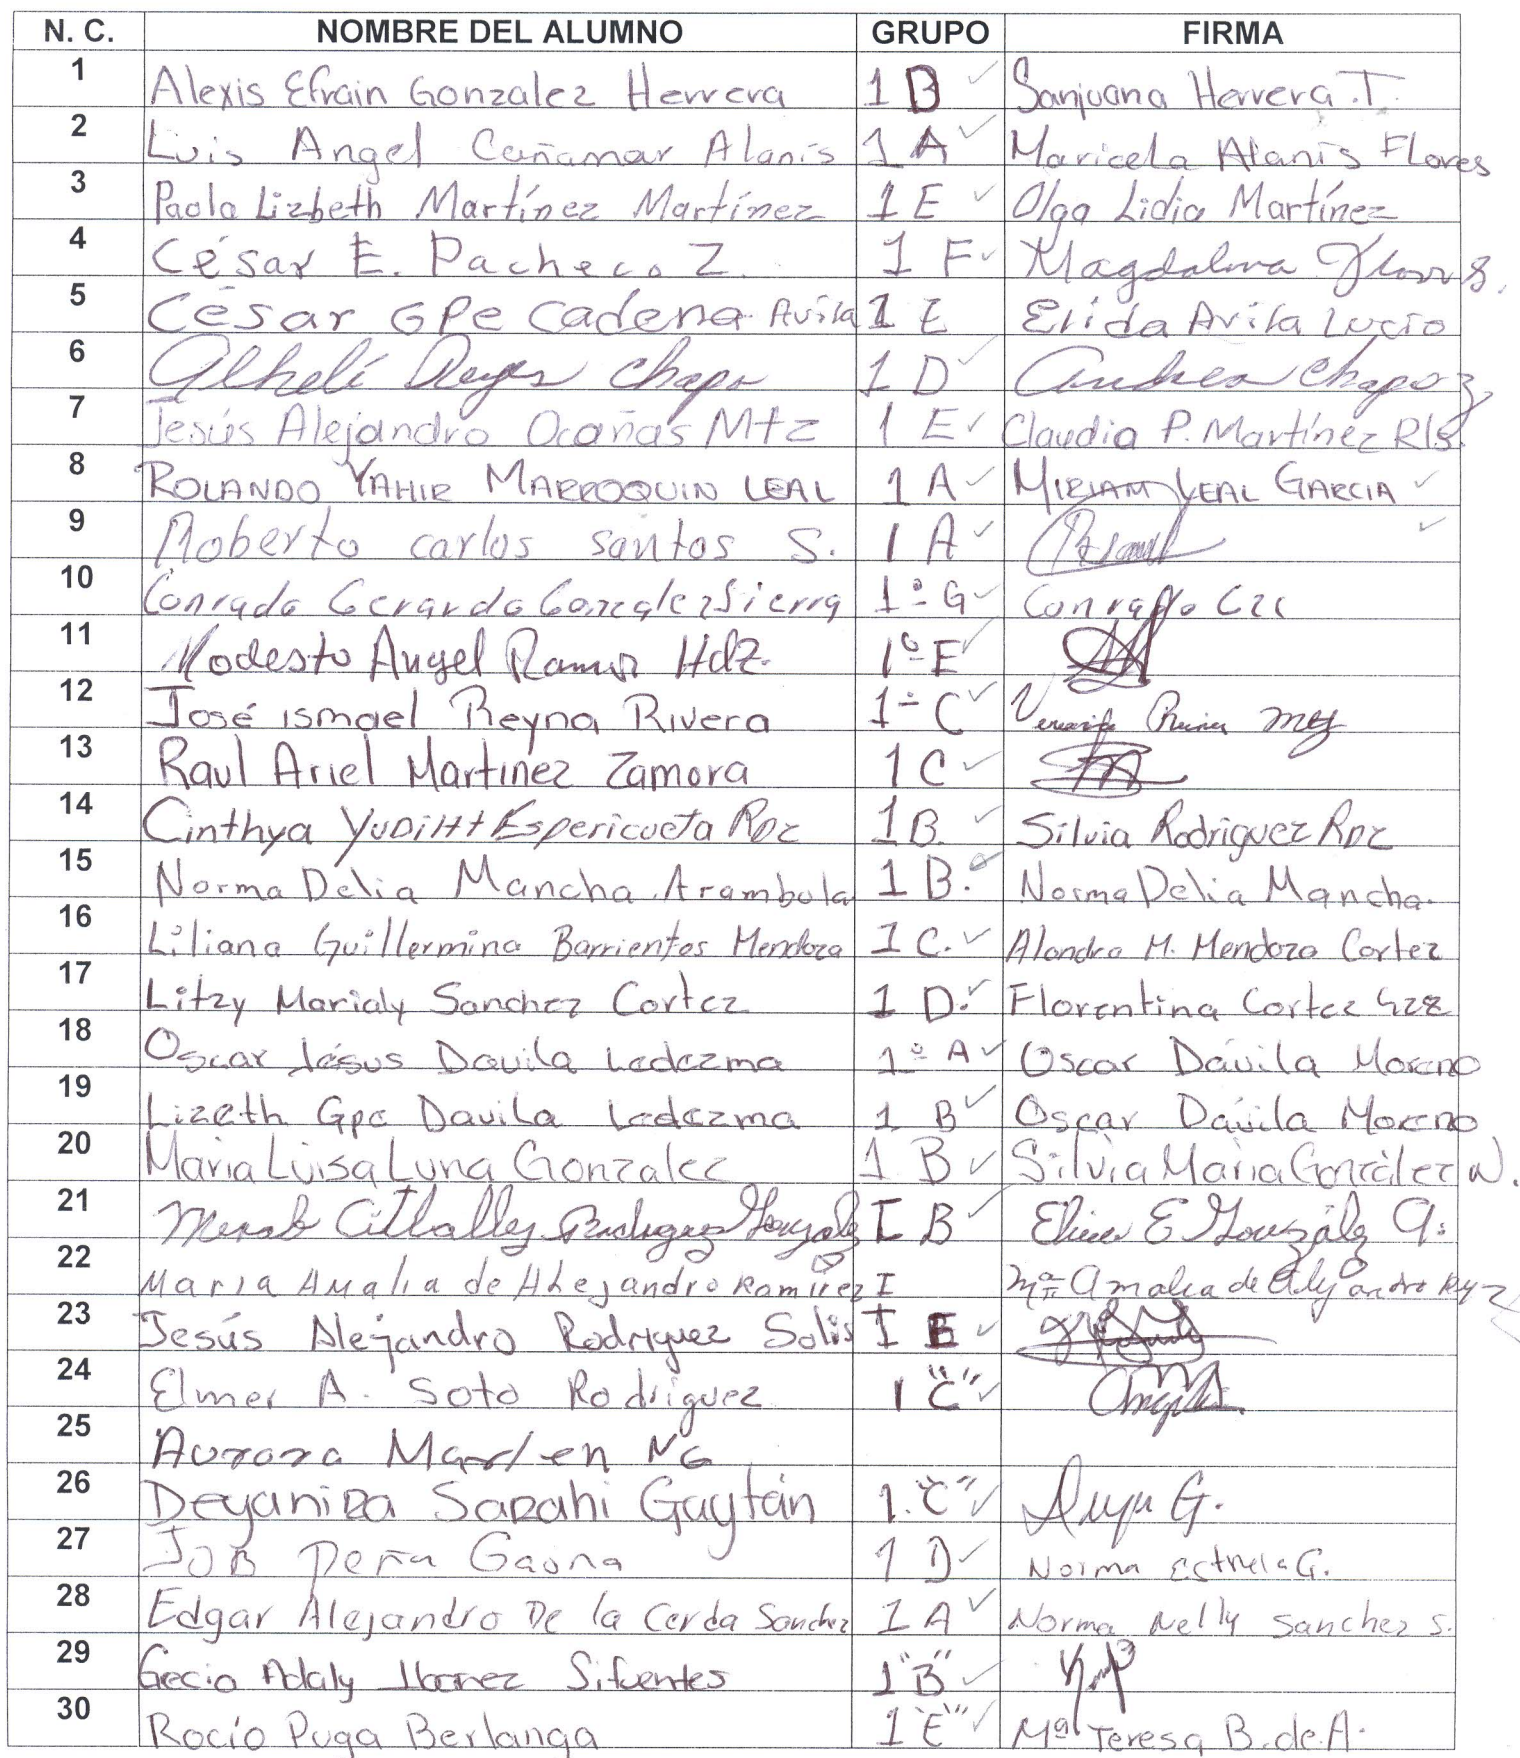 N. C. NOMBRE DEL ALUMNO GRUPO FIRMA
1 Alexis Efrain Gonzalez Herrera 1 B Sanjuana Herrera .T.
2 Luis Angel Cañamar Alanis 1 A Maricela Alanis Flores
3 Paola Lizbeth Martínez Martínez 1 E Olga Lidia Martínez
4 César E. Pacheco Z. 1 F Magdalena
5 César GPe Cadena Avila 1 E Elida Avila Lucio
6 Alhelí Reyes Chapa 1 D Andrea Chapa
7 Jesús Alejandro Ocañas Mtz 1 E Claudia P. Martínez Rls.
8 ROLANDO YAHIR MARROQUIN LEAL 1 A MIRIAM LEAL GARCIA
9 Roberto carlos santos S. 1 A
10 Conrado Gerardo Gonzalez Sierra 1º G Conrado Gzz
11 Modesto Angel Ramir Hdz. 1º E
12 José ismael Reyna Rivera 1º C
13 Raul Ariel Martinez Zamora 1 C
14 Cinthya YUDITH Espericueta Rdz 1 B. Silvia Rodriguez Rdz
15 Norma Delia Mancha Arambula 1 B. Norma Delia Mancha.
16 Liliana Guillermina Barrientos Mendoza 1 C. Alondra M. Mendoza Cortez
17 Litzy Marialy Sanchez Cortez 1 D. Florentina Cortez Gzz
18 Oscar Jésus Davila Ledezma 1º A Oscar Dávila Moreno
19 Lizeth Gpe Davila Ledezma 1 B Oscar Dávila Moreno
20 Maria Luisa Luna Gonzalez 1 B Silvia Maria González N.
21 Merab Citlalley Rodriguez Gonzalez I B E González G.
22 Maria Amalia de Alejandro Ramirez I Mª Amalia de Alejandro
23 Jesús Alejandro Rodriguez Solis I E
24 Elmer A. Soto Rodriguez 1 "C"
25 Aurora Marlen NG
26 Deyanira Sarahi Gaytán 1. "C" G.
27 JOB Peña Gaona 1 D Norma Estrela G.
28 Edgar Alejandro De la Cerda Sanchez 1 A Norma Nelly Sanchez S.
29 Gecia Adaly Ibanez Sifuentes 1 "B"
30 Rocío Puga Berlanga 1 "E" Mª Teresa B. de A.